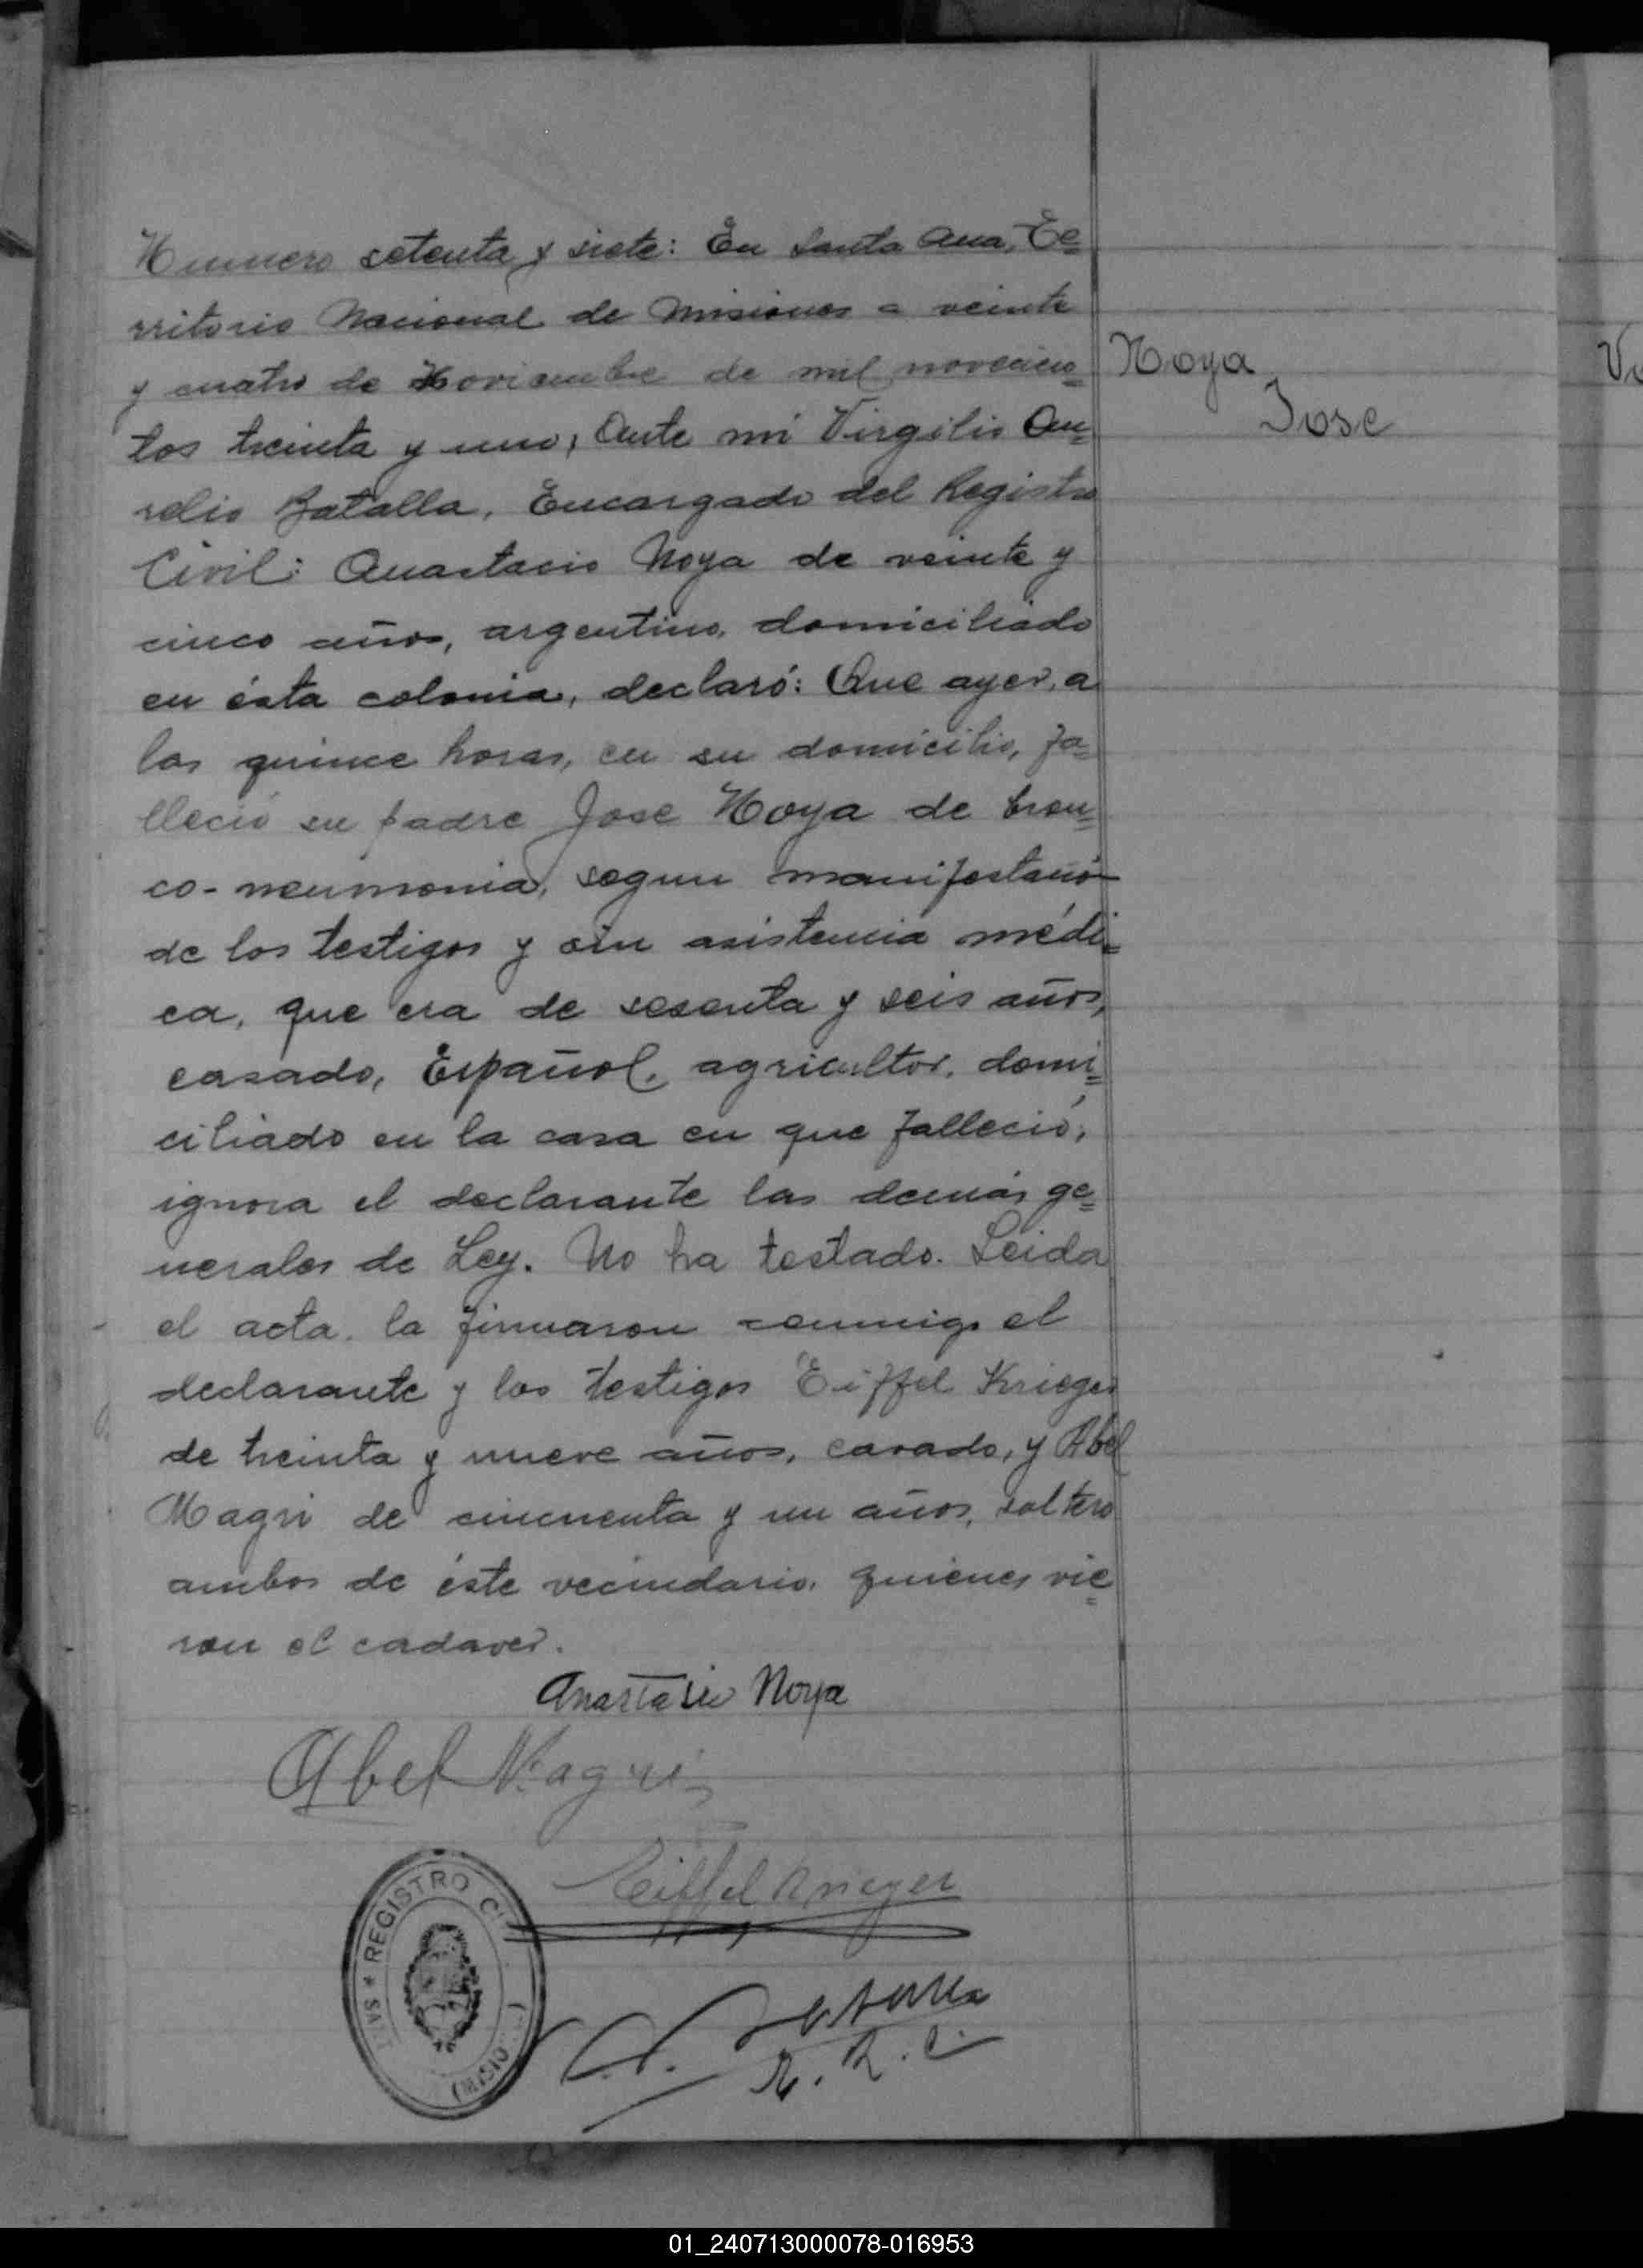 Numero setenta y siete: En Santa Ana, Te=
rritorio Nacional de Misiones a veinte
y cuatro de Noviembre de mil novecien=
tos treinta y uno, Ante mi Virgilio Au=
relio Batalla, Encargado del Registro
Civil: Anastacio Noya de veinte y
cinco años, argentino, domiciliado
en ésta colonia, declaró: Que ayer, a
las quince horas, en su domicilio, fa=
lleció su padre Jose Noya de bron=
co-neumonia, segun manifestació
de los testigos y sin asistencia médi=
ca, que era de sesenta y seis años,
casado, Español, agricultor, domi=
ciliado en la casa en que falleció;
ignora el declarante las demás ge=
nerales de Ley. No ha testado. Leida
el acta, la firmaron conmigo el
declarante y los testigos Eiffel Krieger
de treinta y nueve años, casado, y Abel
Magri de cincuenta y un años, soltero
ambos de éste vecindario, quienes vie=
ron el cadaver.
Noya
Jose
Anastasio Noya
Abel Magri
Eiffel Krieger
Batalla
REGISTRO
01_240713000078-016953